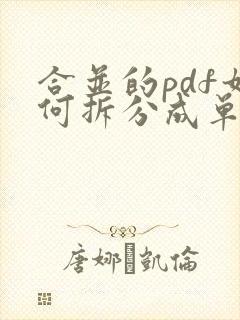 合並的pdf如
何拆分成單
唐娜凱倫